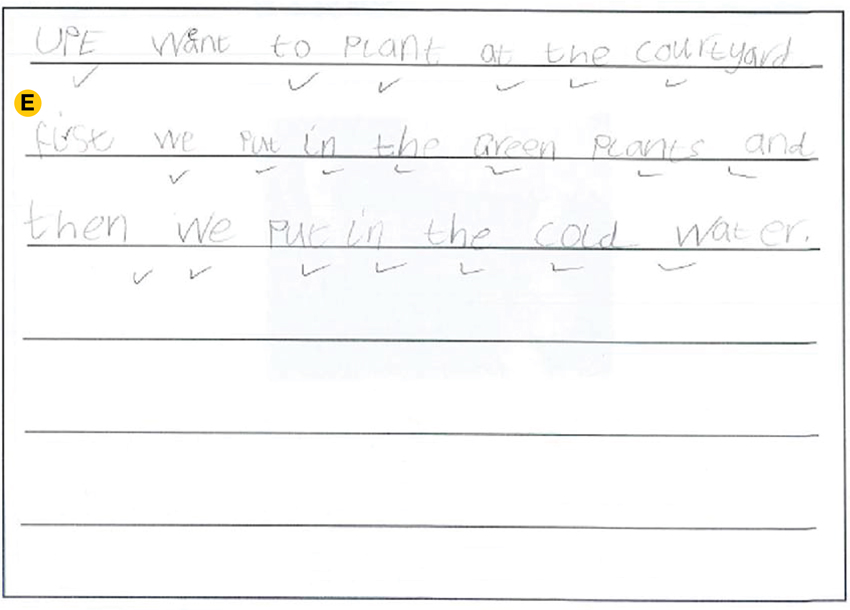 UPE want to plant at the courtyard
E
first we put in the green plants and
then we put in the cold water.